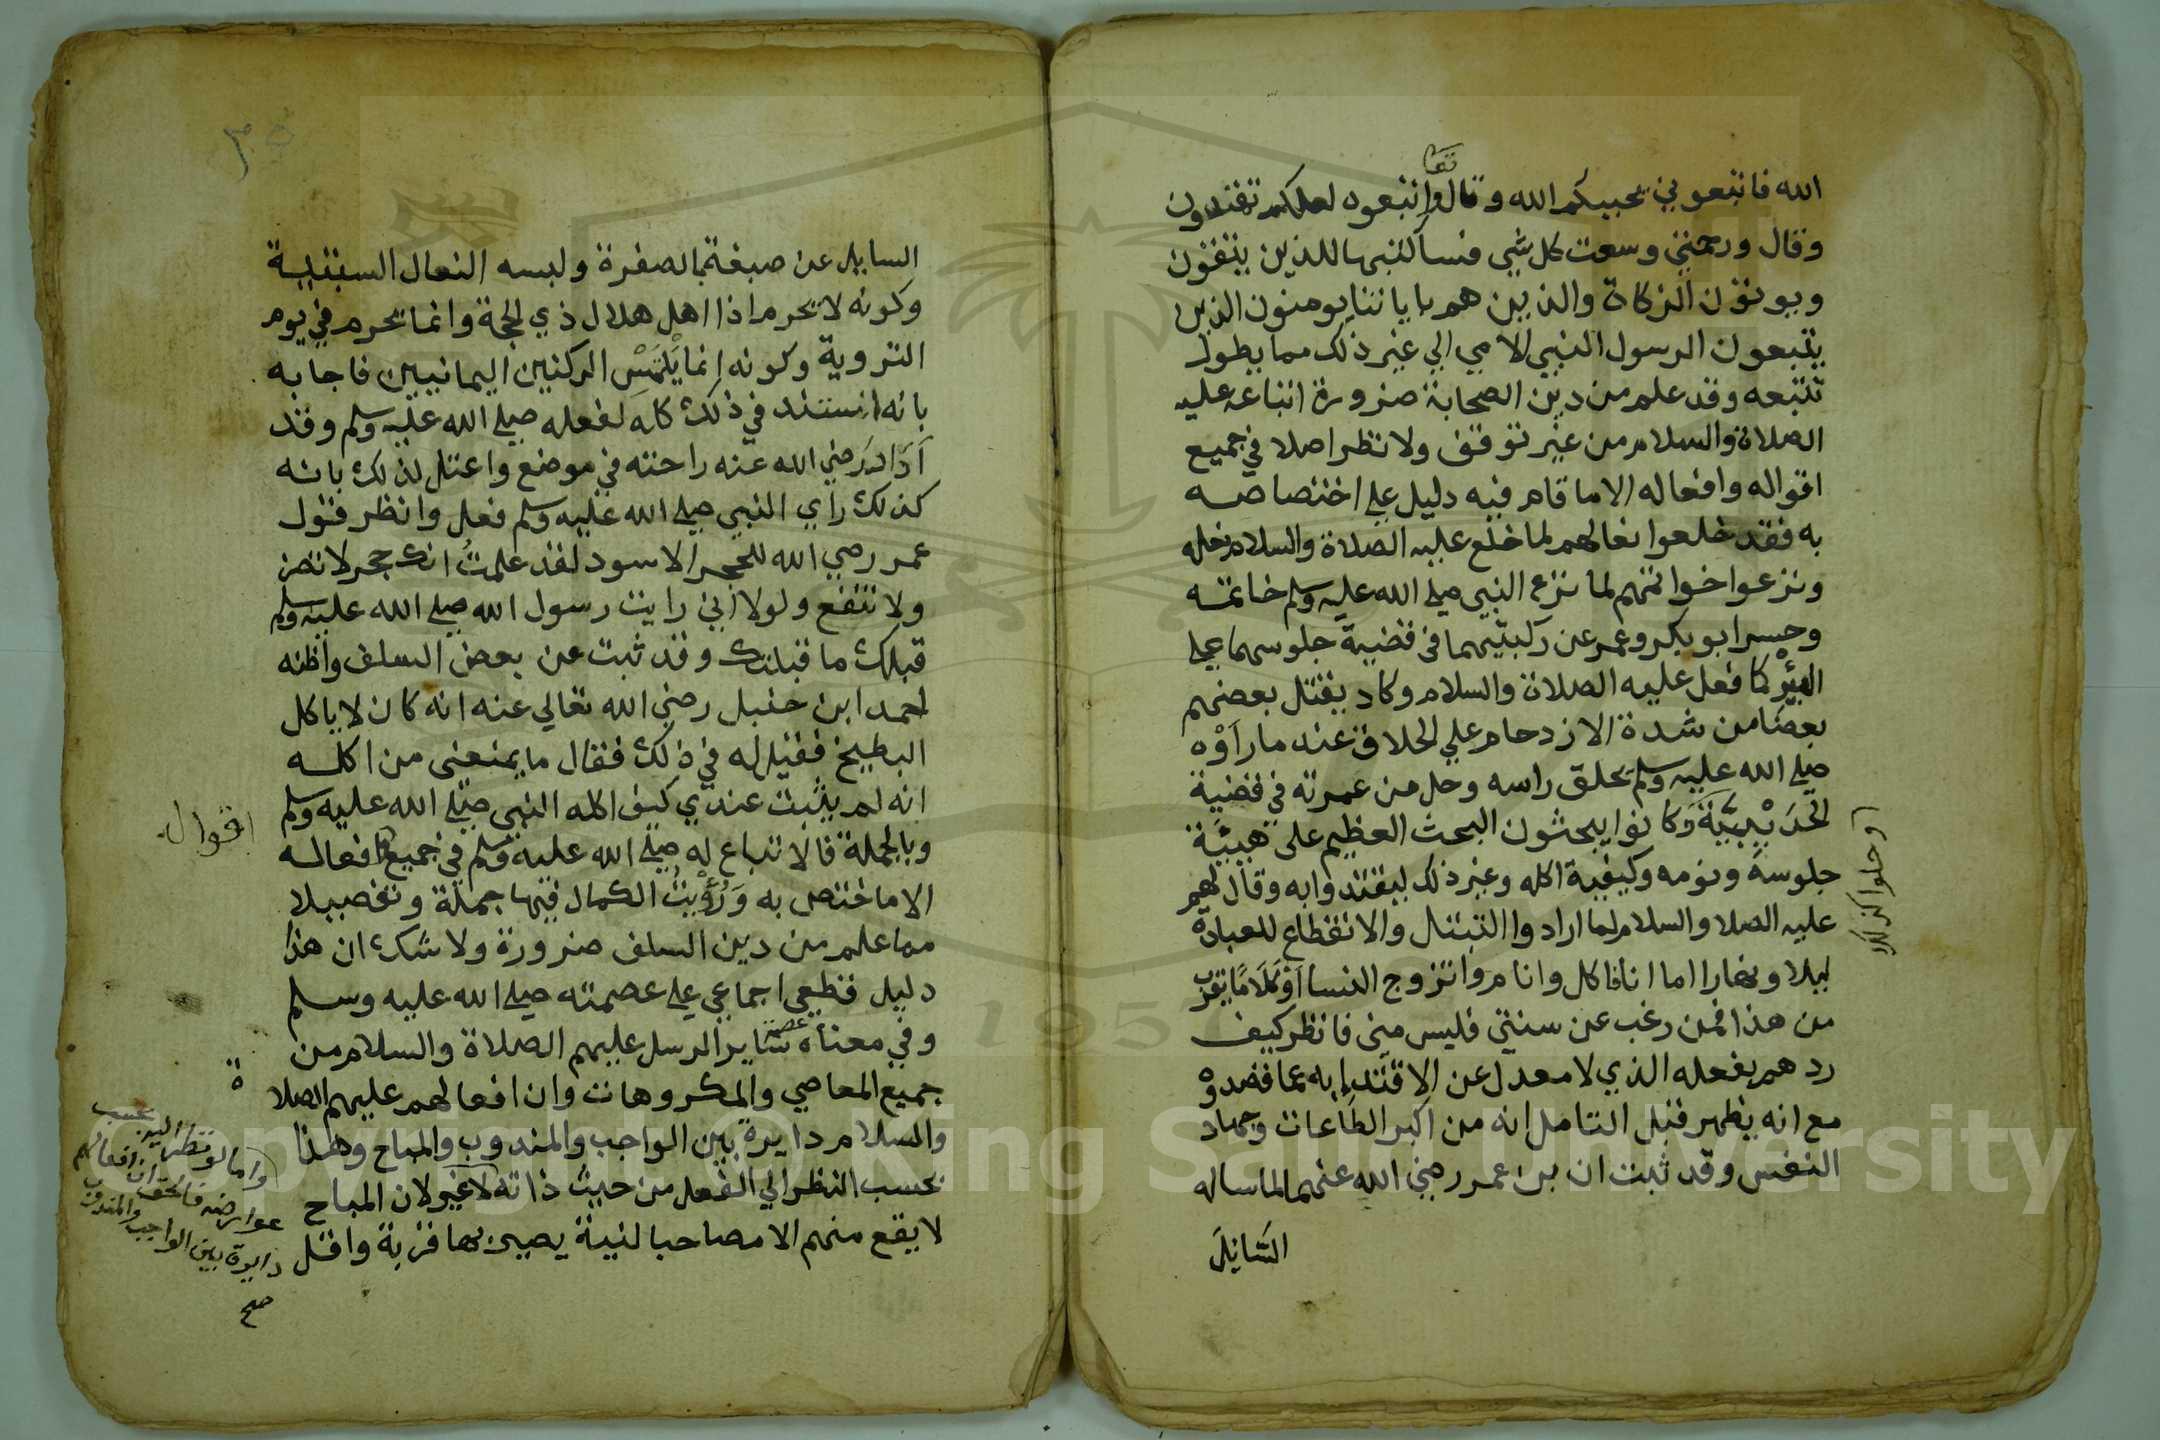 الله فاتبعوني يحببكم الله وقال تعا واتبعوه لعلكم تهتدون
وقال ورحمتي وسعت كل شي فسأكتبها للذين يتقون
ويوتون الزكاة والذين هم باياتنا يومنون الذين
يتبعون الرسول النبي الامي الي غير ذلك مما يطول
تتبعه وقد علم من دين الصحابة ضرورة اتباعه عليه
الصلاة والسلام من غير توقف ولا نظر اصلا في جميع
اقواله وافعاله الا ما قام فيه دليل علي اختصاصه
به فقد خلعوا نعالهم لما خلع عليه الصلاة والسلام نعله
ونزعوا خواتمهم لما نزع النبي صلي الله عليه وسلم خاتمه
وحسر ابو بكر وعمر عن ركبتيهما في قضية جلوسهما علي
البئر كما فعل عليه الصلاة والسلام وكاد يقتل بعضهم
بعضا من شدة الازدحام علي الحلاق عند ما رأوه
صلي الله عليه وسلم يحلق راسه وحل من عمرته في قضية
الحديبية وكانوا يبحثون البحث العظيم على هيئة
جلوسه ونومه وكيفية اكله وغير ذلك ليقتدوا به وقال لهم
عليه الصلا والسلام لما ارادوا التبتل والانقطاع للعبادة
ليلا ونهارا اما انا فاكل وانام واتزوج النسا او كلاما يقرب
من هذا فمن رغب عن سنتي فليس مني فانظر كيف
ردهم بفعله الذي لا معدل عن الاقتدا به عما قصدوه
مع انه يظهر قبل التامل انه من اكبر الطاعات وجهاد
النفس وقد ثبت ان بن عمر رضي الله عنهما لما ساله
السايل
السايل عن صبغة بالصفرة ولبسه النعال السبتية
وكونه لا يحرم اذا اهل هلال ذي الحجة وانما يحرم في يوم
التروية وكونه انما يلتمس الركنين اليمانيين فاجابه
بانه استند في ذلك كله لفعله صلي الله عليه وسلم وقد
أدار رضي الله عنه راحته في موضع واعتل لذلك بانه
كذلك راي النبي صلي الله عليه وسلم فعل وانظر قول
عمر رضي الله للحجر الاسود لقد علمت انك حجر لا تضر
ولا تنفع ولولا اني رايت رسول الله صلي الله عليه وسلم
قبلك ما قبلتك وقد ثبت عن بعض السلف واظنه
احمد ابن حنبل رضي الله تعالي عنه انه كان لا ياكل
البطيخ فقيل له في ذلك فقال ما يمنعني من اكله
انه لم يثبت عندي كيف اكله النبي صلي الله عليه وسلم
وبالجملة فالاتباع له صلي الله عليه وسلم في جميع افعاله
اقوال
الا ما اختص به ورؤيت الكمال فيها جملة وتفصيلا
مما علم من دين السلف ضرورة ولا شك ان هذا
دليل قطعي اجماعي علي عصمته صلي الله عليه وسلم
وفي معناه عصمة ساير الرسل عليهم الصلاة والسلام من
جميع المعاصي والمكروهات وان افعالهم عليهم الصلا
ة
والسلام دايرة بين الواجب والمندوب والمباح وهذا
بحسب النظر الي الفعل من حيث ذاته لا غير لان المباح
لا يقع منهم الا مصاحبا لنية يصير بها قربة واقل
واما لو نظر اليه بحسب
عوارضه فالحق ان افعالهم
دايرة بين الواجب والمندوب
صح
٣٥
Copyright © King Saud University
195